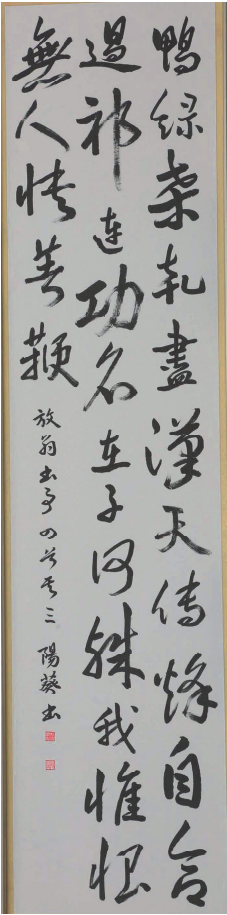 鴨緑桑乾盡漢天傳烽自合
過祁連功名在子何殊我惟恨
無人快著鞭
放翁書事四首其三 陽葵書